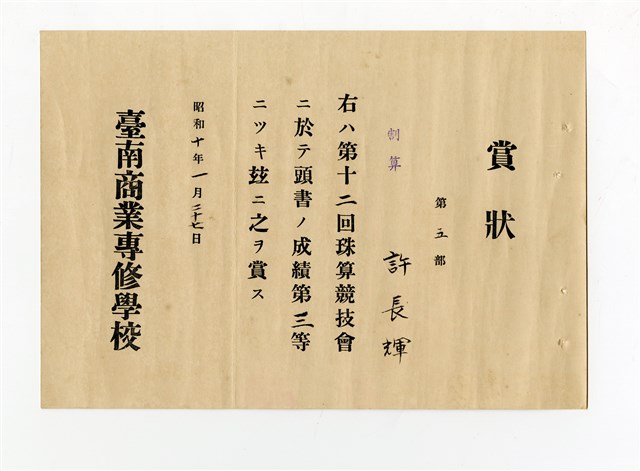 賞狀
第五部
割算
許長輝
右ハ第十二回珠算競技會
ニ於テ頭書ノ成績第三等
ニツキ玆ニ之ヲ賞ス
昭和十年一月二十七日
臺南商業專修學校